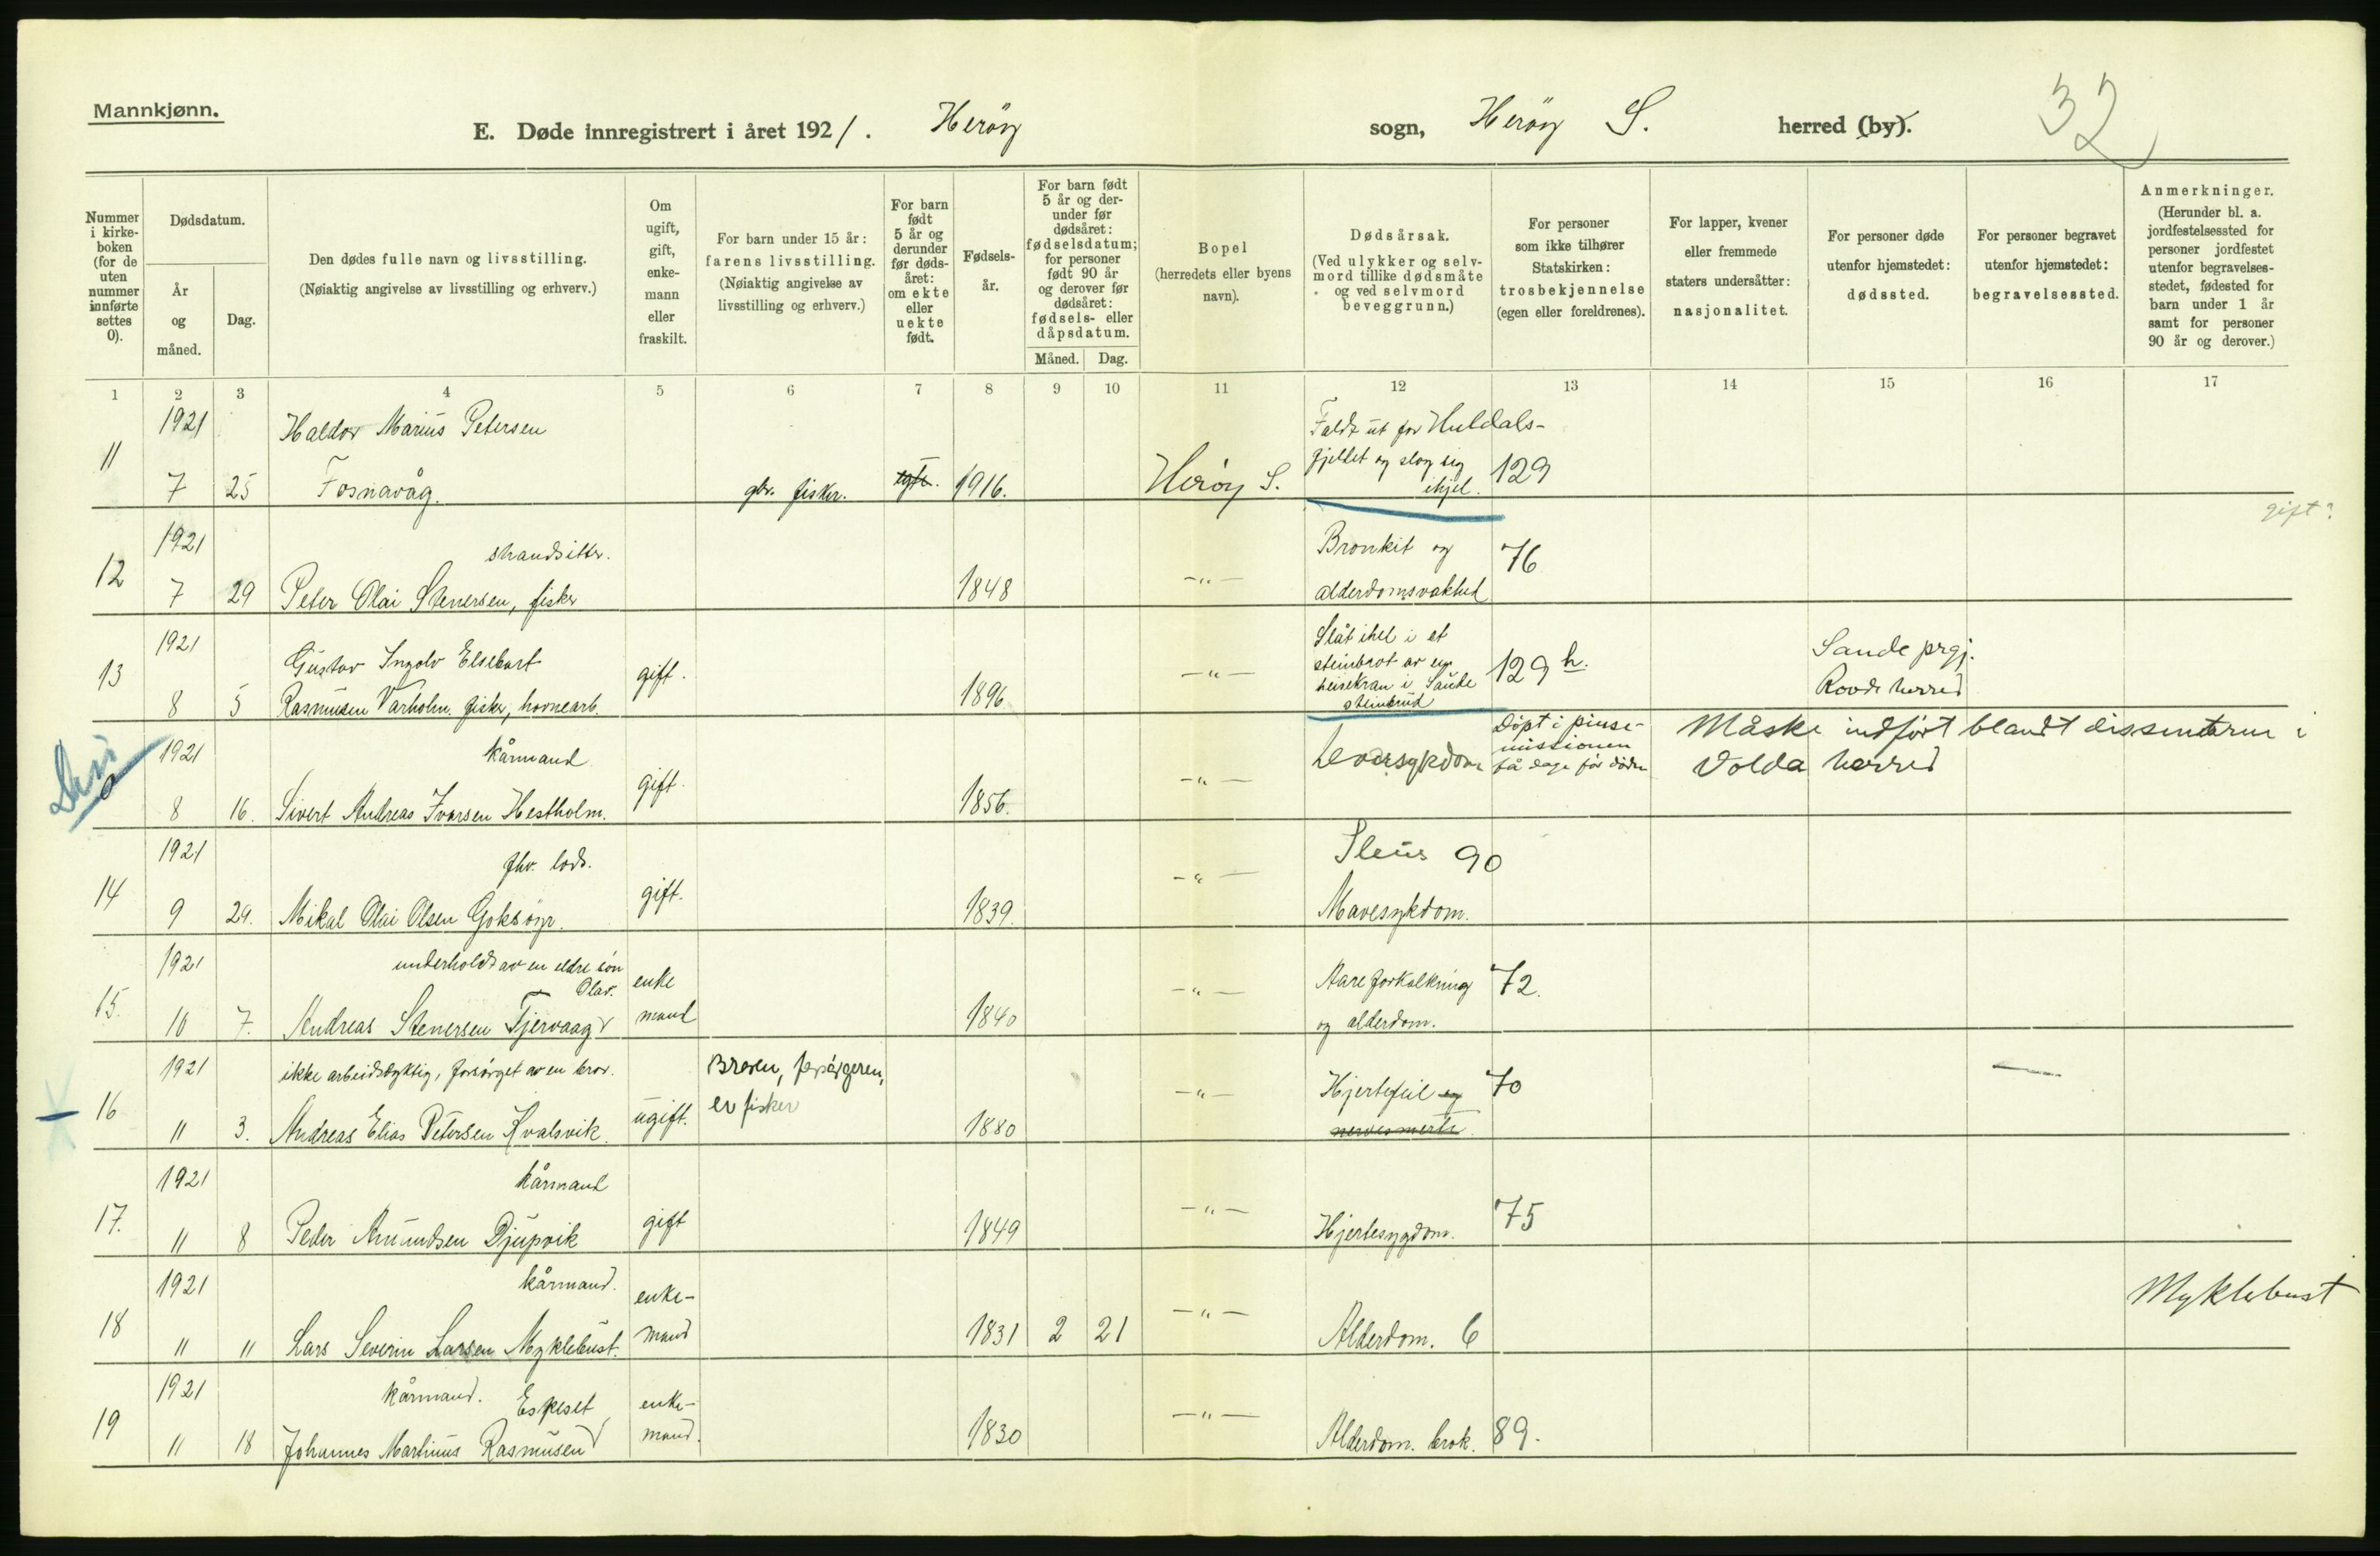 Mannkjønn.
E. Døde innregistrert i året 1921. Herøy sogn, Herøy S. herred (by).
32
Nummer i kirkeboken (for de uten nummer innførte settes 0).
Dødsdatum.
År og måned.
Dag.
Den dødes fulle navn og livsstilling.
(Nøiaktig angivelse av livsstilling og erhverv.)
Om ugift, gift, enkemann eller fraskilt.
For barn under 15 år: farens livsstilling.
(Nøiaktig angivelse av livsstilling og erhverv.)
For barn født 5 år og derunder før dødsåret: om ekte eller uekte født.
Fødselsår.
For barn født 5 år og derunder før dødsåret: fødselsdatum; for personer født 90 år og derover før dødsåret: fødsels- eller dåpsdatum.
Måned. Dag.
Bopel
(herredets eller byens navn).
Dødsårsak.
(Ved ulykker og selvmord tillike dødsmåte og ved selvmord beveggrunn.)
For personer som ikke tilhører Statskirken: trosbekjennelse (egen eller foreldrenes).
For lapper, kvener eller fremmede staters undersåtter: nasjonalitet.
For personer døde utenfor hjemstedet: dødssted.
For personer begravet utenfor hjemstedet: begravelsessted.
Anmerkninger.
(Herunder bl. a. jordfestelsessted for personer jordfestet utenfor begravelsesstedet, fødested for barn under 1 år samt for personer 90 år og derover.)
1 2 3 4 5 6 7 8 9 10 11 12 13 14 15 16 17
1921 Haldor Marius Petersen Faldt ut for Huldals-
11 7 25 Fosnavåg. gbr. fisker. egte. 1916. Herøy S. fjellet og slog sig ihjel. 129
gift?
1921 strandsitter. Bronkit og 76
12 7 29 Peter Olai Stenersen, fisker 1848 -"- alderdomsvakhet
1921 Gustav Ingolv Elsebart gift. -"- Slåt ihel i et
13 8 5 Rasmusen Varholm. fisker, hovnearb. 1896 steinbrot av en heisekran i Saude steinbrud 129 h. Sande prgj. Rovde herred
1921 kårmand gift. -"- Leversykdom Døpt i pinse-missionen få dage før døden Måske indført blandt dissenterne i Volda herred
0 8 16. Sivert Andreas Ivarsen Hestholm. 1856.
1921 fhv. lods. gift. -"- Ileus 90
14 9 29. Mikal Olai Olsen Goksøyr. 1839. Mavesykdom.
1921 underholdt av en eldre søn Olav. enke -"- Aareforkalkning 72.
15. 10 7. Andreas Stenersen Tjervaag mand 1840 og alderdom.
1921 ikke arbeidsdyktig, forsørget av en bror. Broren, forsørgeren, -"- Hjertefeil og 70
16 11 3. Andreas Elias Petersen Kvalsvik. ugift. er fisker 1880 nervesmerte.
1921 kårmand -"-
17. 11 8 Peder Amundsen Djupvik gift 1849 Hjertesygdom. 75
1921 kårmand. enke- -"- Myklebust
18 11 11 Lars Severin Larsen Myklebust. mand 1831 2 21 Alderdom. 6
1921 kårmand. Espeset enke- -"-
19 11 18 Johannes Martinus Rasmusen mand. 1830 Alderdom. brok. 89.